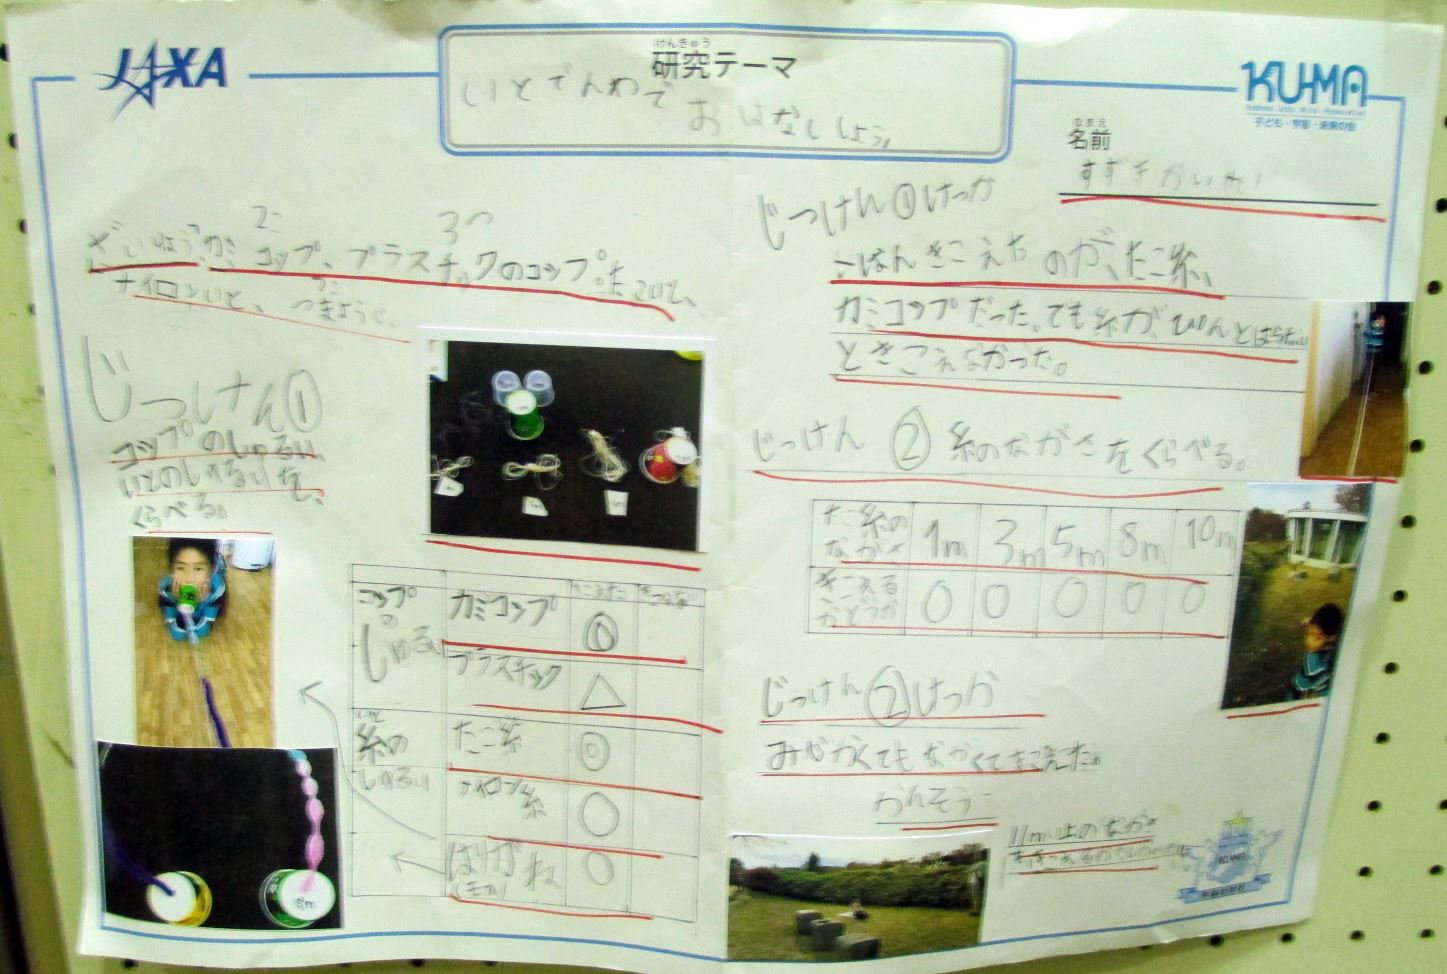 JAXA
けんきゅう
研究テーマ
いとでんわで
おはなししよう。
KU-MA
子ども・宇宙・未来の会
なまえ
名前
2こ 3つ
ざいりょう カミコップ、プラスチックのコップ。たこいと、
ナイロンいと、つまようじ、
じっけん①
コップのしゅるい、
いとのしゅるいを、
くらべる。
コップのしゅるい
カミコップ ◎
プラスチック △
いと
糸のしゅるい
たこ糸 ◎
ナイロン糸 ○
はりがね ○
(モール)
じっけん①けっか
いちばんきこえたのが、たこ糸、
カミコップだった。でも糸が、ぴんとはらない
ときこえなかった。
じっけん② 糸のながさをくらべる。
たこ糸のながさ 1m 3m 5m 8m 10m
きこえるかどうか ○ ○ ○ ○ ○
じっけん②けっか
みじかくてもながくてきこえた。
かんそう
11m以上のながさ